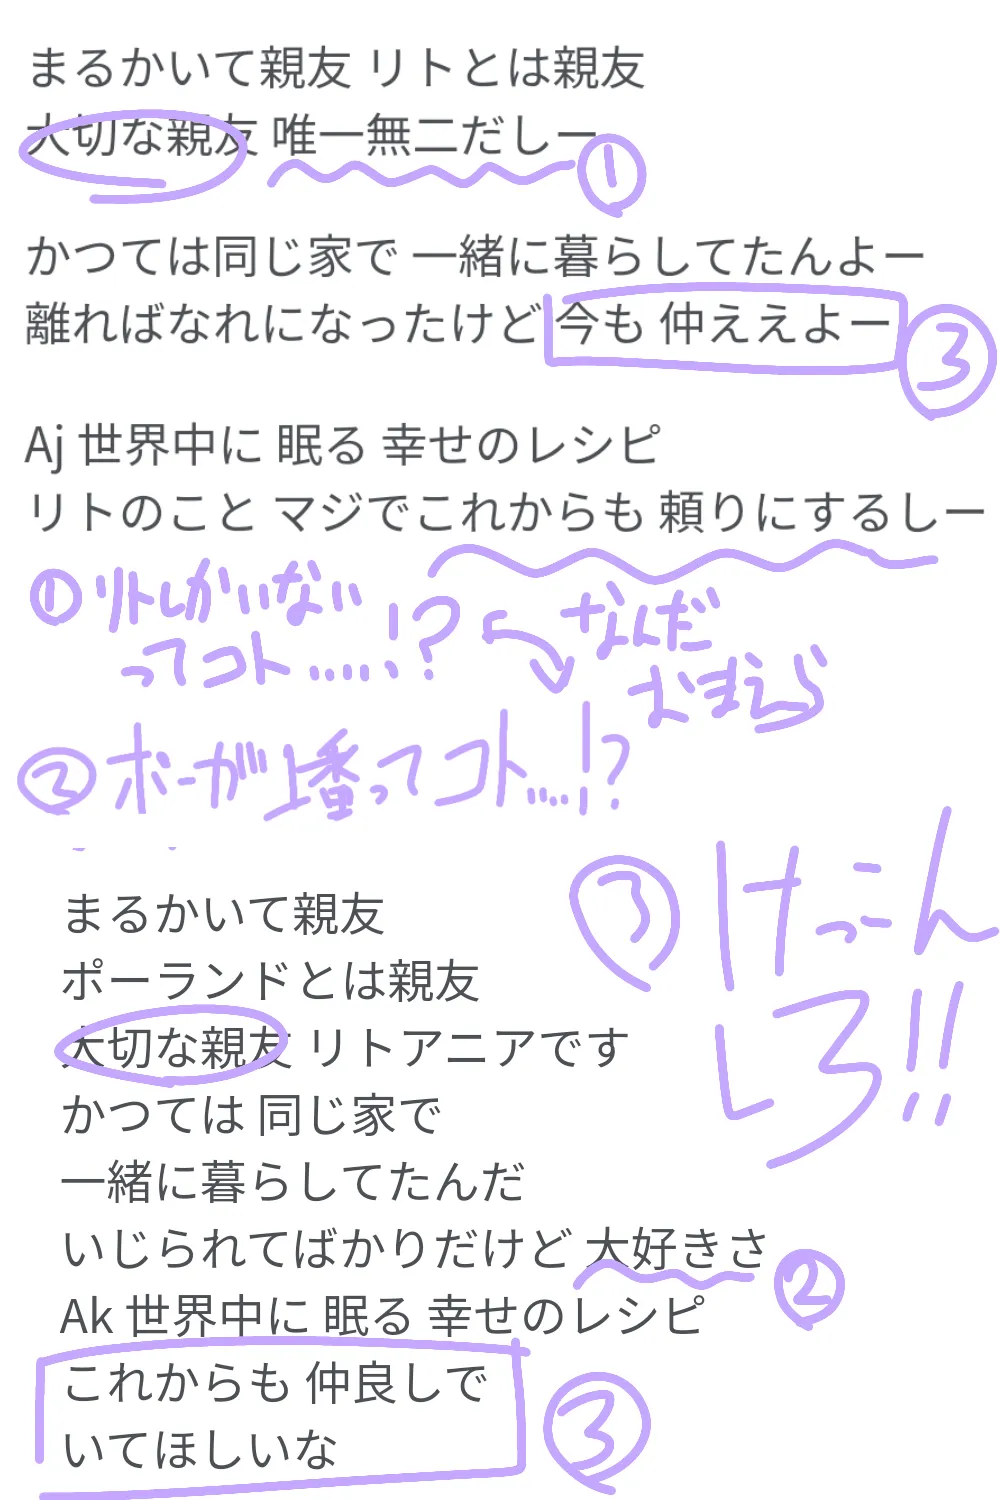 まるかいて親友 リトとは親友
大切な親友 唯一無二だしー
①
かつては同じ家で 一緒に暮らしてたんよー
離ればなれになったけど 今も 仲ええよー
③
Aj 世界中に 眠る 幸せのレシピ
リトのこと マジでこれからも 頼りにするしー
①リトしかいない
ってコト.....!?
なんだ
おまえら
②ポーが1番ってコト....!?
まるかいて親友
ポーランドとは親友
大切な親友 リトアニアです
かつては 同じ家で
一緒に暮らしてたんだ
いじられてばかりだけど 大好きさ
②
Ak 世界中に 眠る 幸せのレシピ
これからも 仲良しで
いてほしいな
③
③けっこん
しろ!!